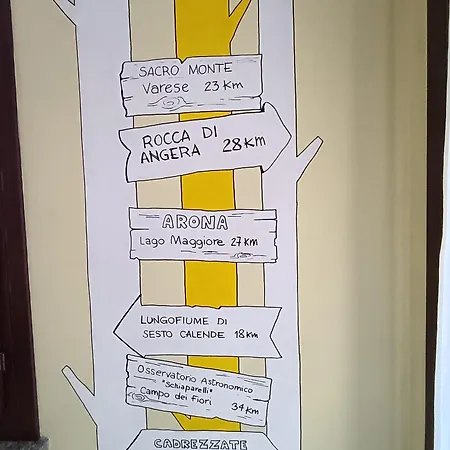 SACRO MONTE
Varese 23 Km
ROCCA DI
ANGERA 28 Km
ARONA
Lago Maggiore 27 Km
LUNGOFIUME DI
SESTO CALENDE 18 Km
Osservatorio Astronomico
"Schiaparelli"
Campo dei fiori 34 Km
CADREZZATE